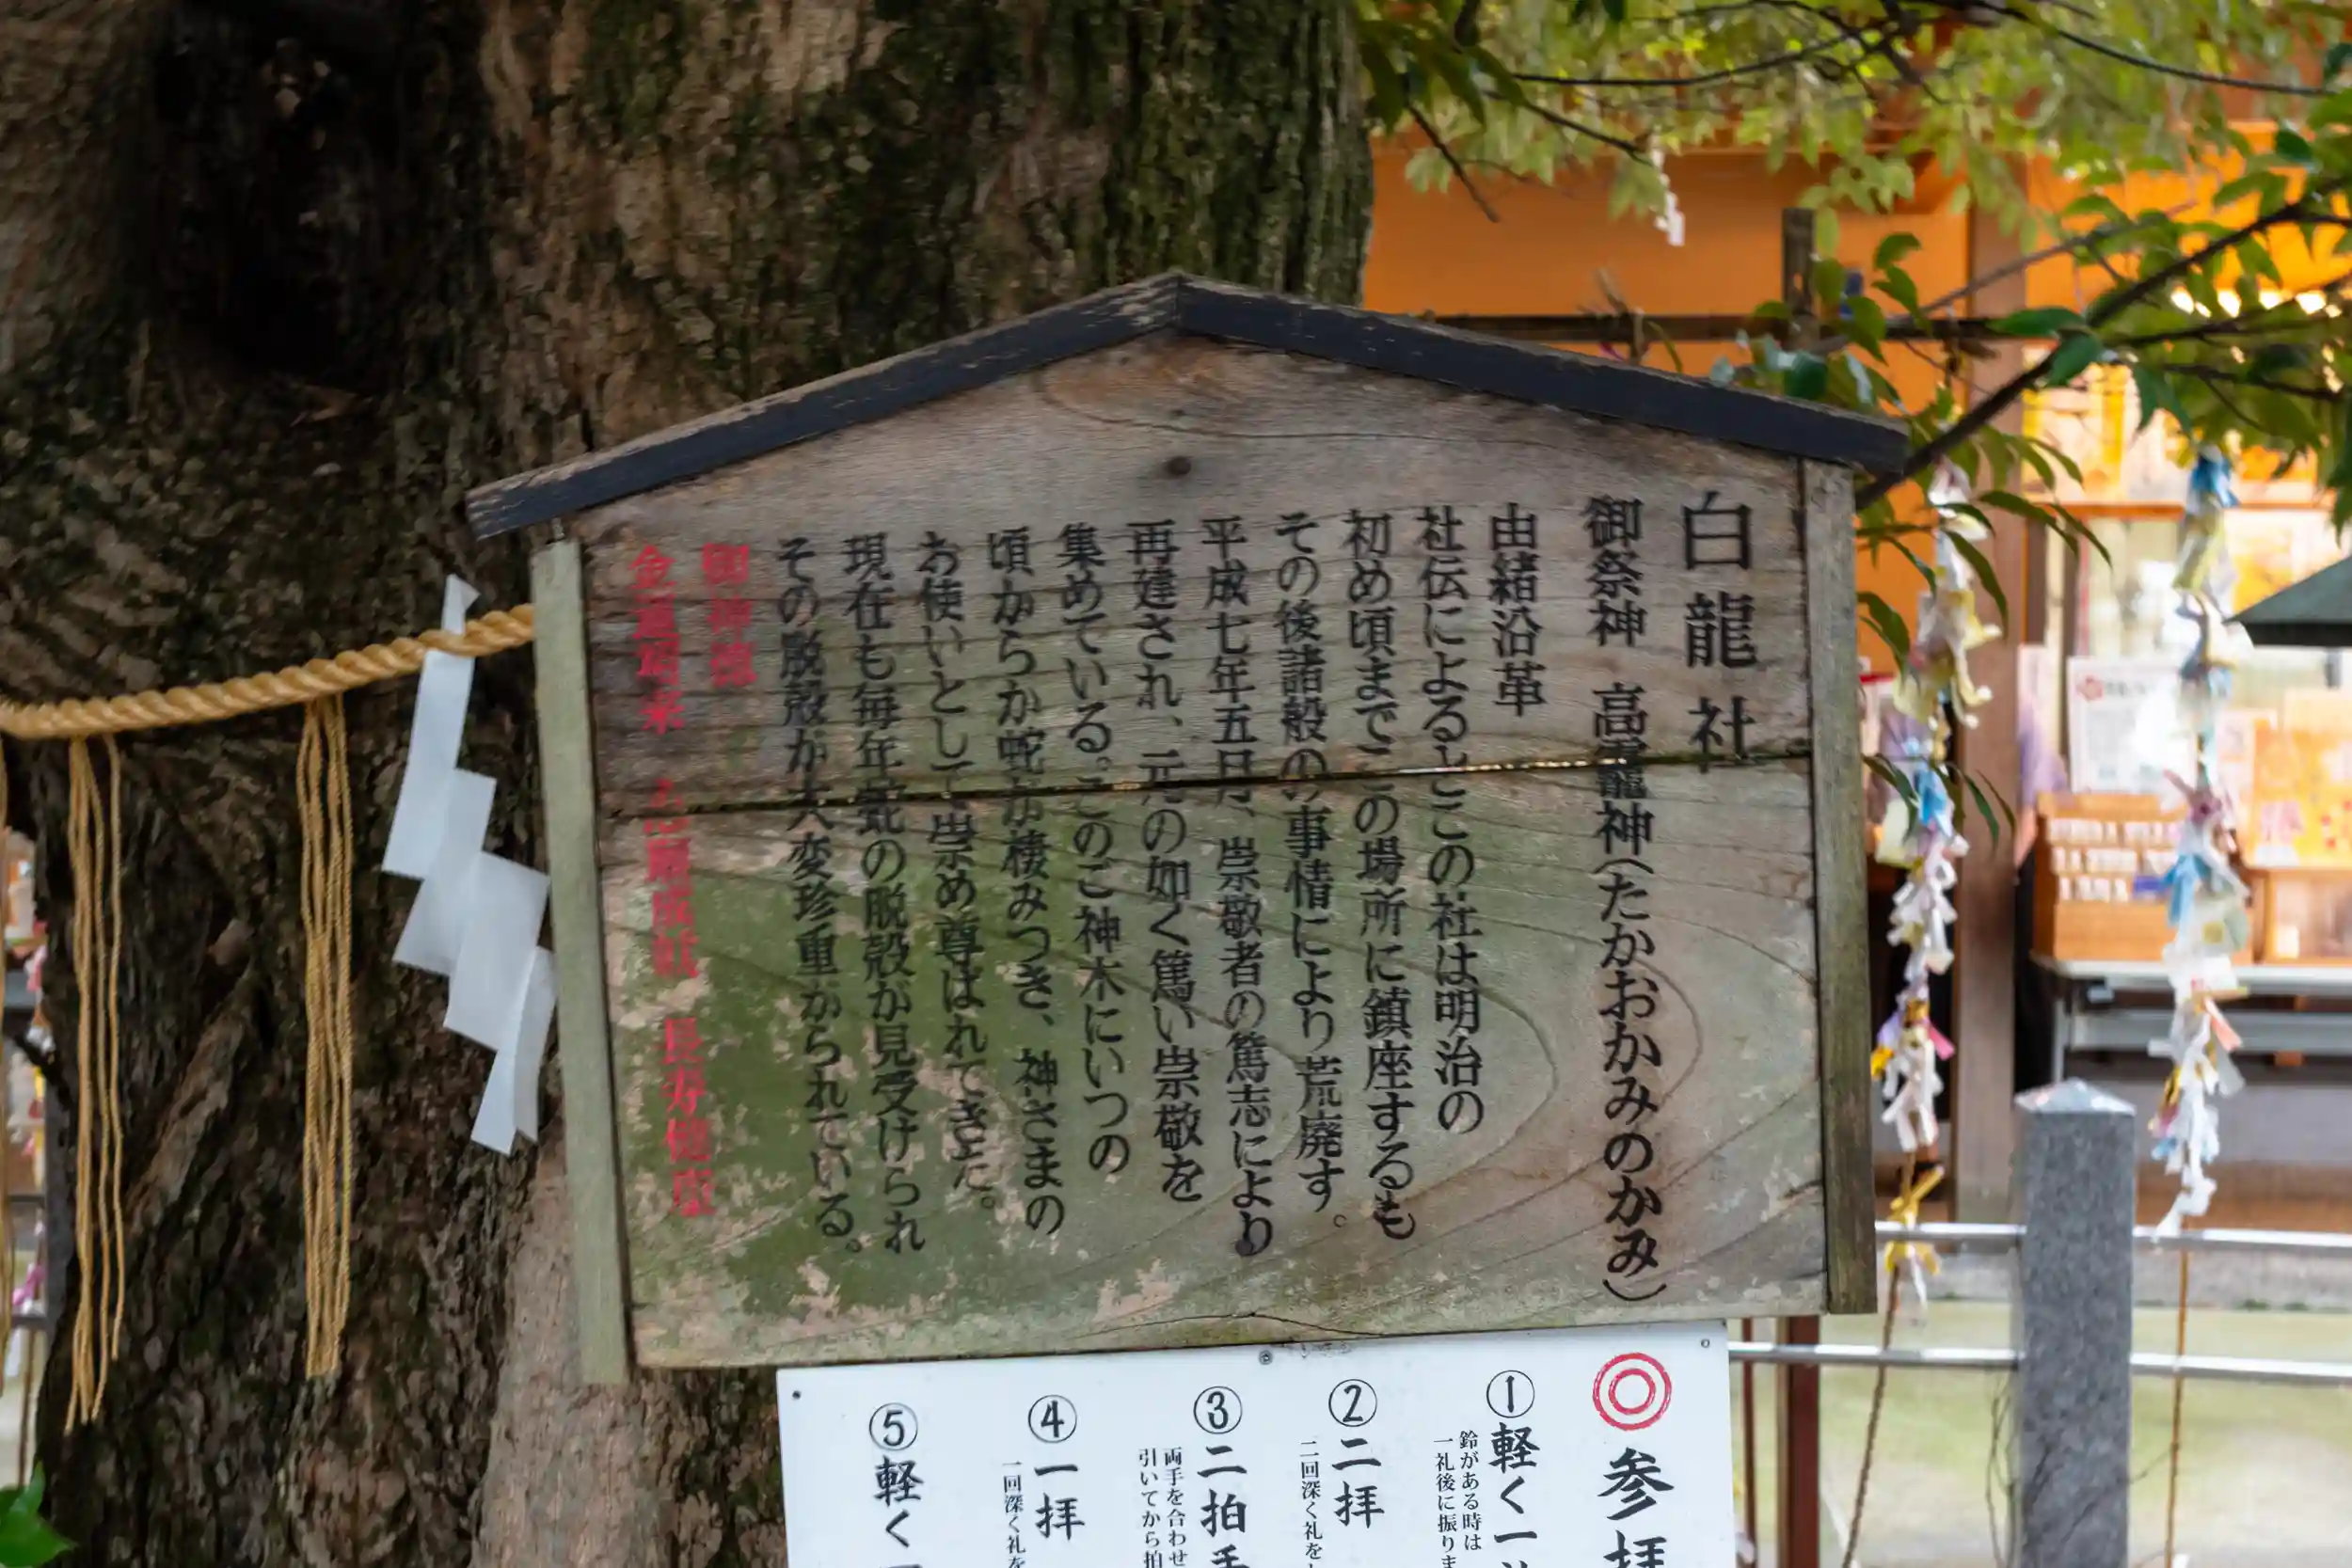 白龍社
御祭神 高龗龍神(たかおかみのかみ)
由緒沿革
社伝によるとこの社は明治の
初め頃までこの場所に鎮座するも
その後諸般の事情により荒廃す。
平成七年五月、崇敬者の篤志により
再建され、元の如く篤い崇敬を
集めている。このご神木にいつの
頃からか蛇が棲みつき、神さまの
お使いとして崇め尊ばれてきた。
現在も毎年蛇の脱殻が見受けられ
その脱殻が大変珍重がられている。
御神徳
金運招来 心願成就 長寿健康
◎参拝
①軽く一
鈴がある時は
一礼後に振りま
②二拝
二回深く礼を
③二拍手
両手を合わせ
引いてから拍
④一拝
一回深く礼を
⑤軽く一